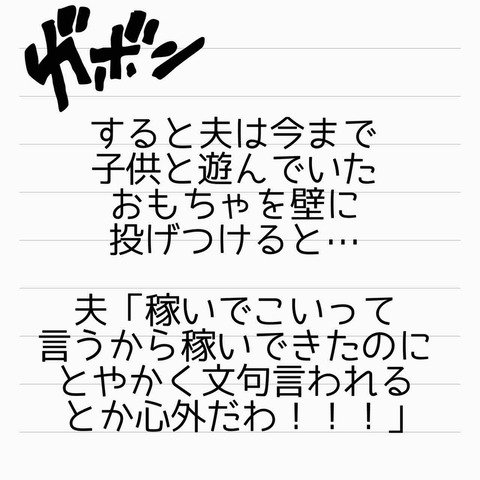 ザボン
すると夫は今まで
子供と遊んでいた
おもちゃを壁に
投げつけると…
夫「稼いでこいって
言うから稼いできたのに
とやかく文句言われる
とか心外だわ！！！」